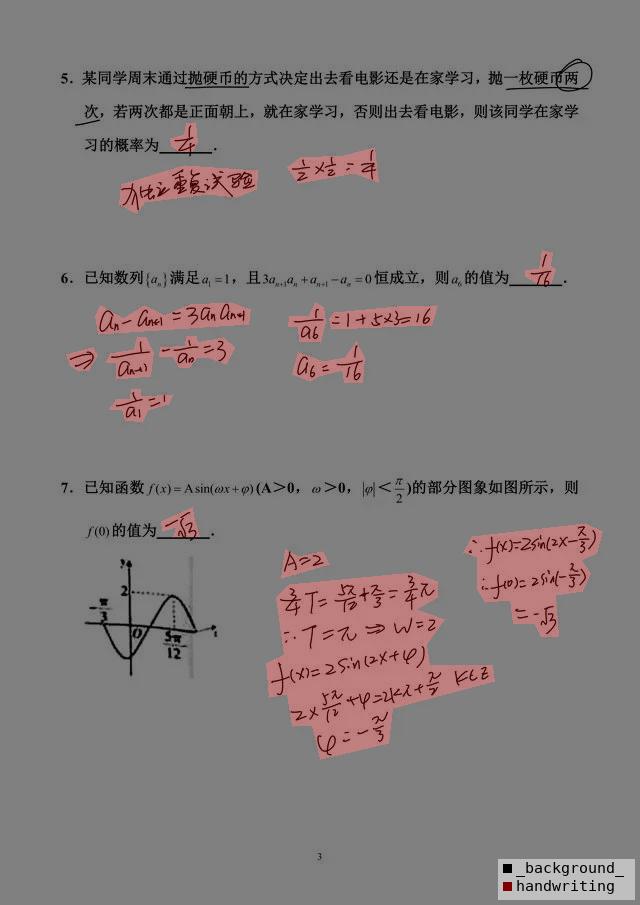 5．某同学周末通过抛硬币的方式决定出去看电影还是在家学习，抛一枚硬币两
次，若两次都是正面朝上，就在家学习，否则出去看电影，则该同学在家学
习的概率为 1/4 ．
独立重复试验
1/2 × 1/2 = 1/4
6．已知数列{aₙ}满足a₁=1，且3aₙ₊₁aₙ+aₙ₊₁−aₙ=0恒成立，则a₆的值为 1/16 ．
aₙ − aₙ₊₁ = 3aₙaₙ₊₁
⇒ 1/aₙ₊₁ − 1/aₙ = 3
1/a₁ = 1
1/a₆ = 1+5×3=16
a₆ = 1/16
7．已知函数 f(x)=Asin(ωx+φ)(A＞0，ω＞0，|φ|＜π/2)的部分图象如图所示，则
f(0)的值为 −√3 ．
y
2
−π/3
O
5π/12
x
A=2
3/4 T = 5π/12 + π/3 = 3/4 π
∴T=π ⇒ W=2
f(x)=2sin(2x+φ)
2×5π/12+φ=2kπ+π/2 k∈Z
φ=−π/3
∴f(x)=2sin(2x−π/3)
∴f(0)=2sin(−π/3)
=−√3
3
_background_
handwriting